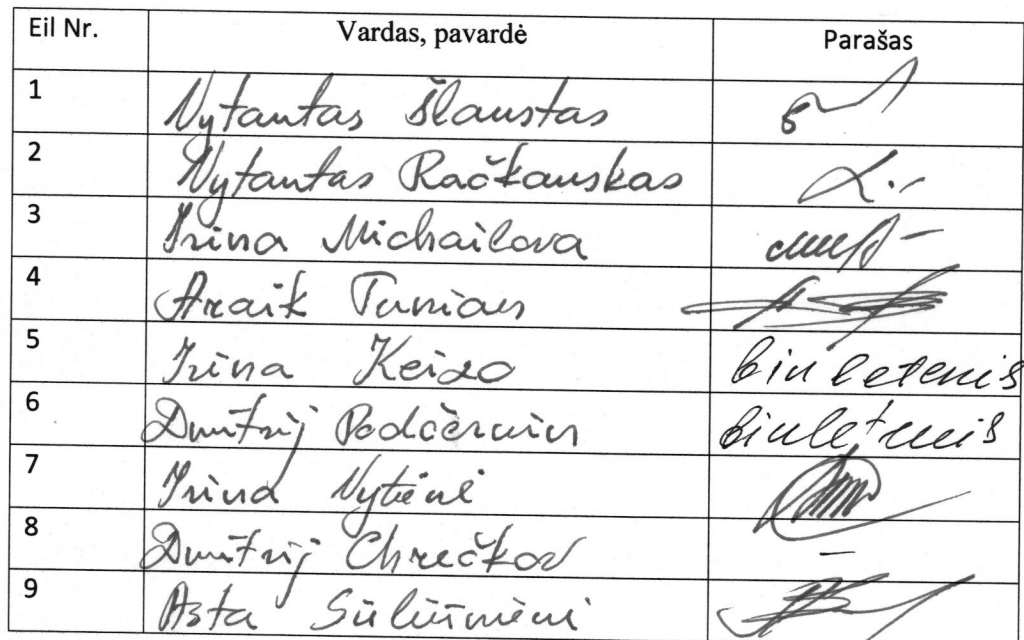 Eil Nr. Vardas, pavardė Parašas
1 Vytautas Šlaustas
2 Vytautas Račkauskas
3 Irina Michailova
4 Araik Tunian
5 Irina Keizo biuletenis
6 Dmitrij Podčernin biuletenis
7 Irina Vytienė
8 Dmitrij Chrečkov –
9 Asta